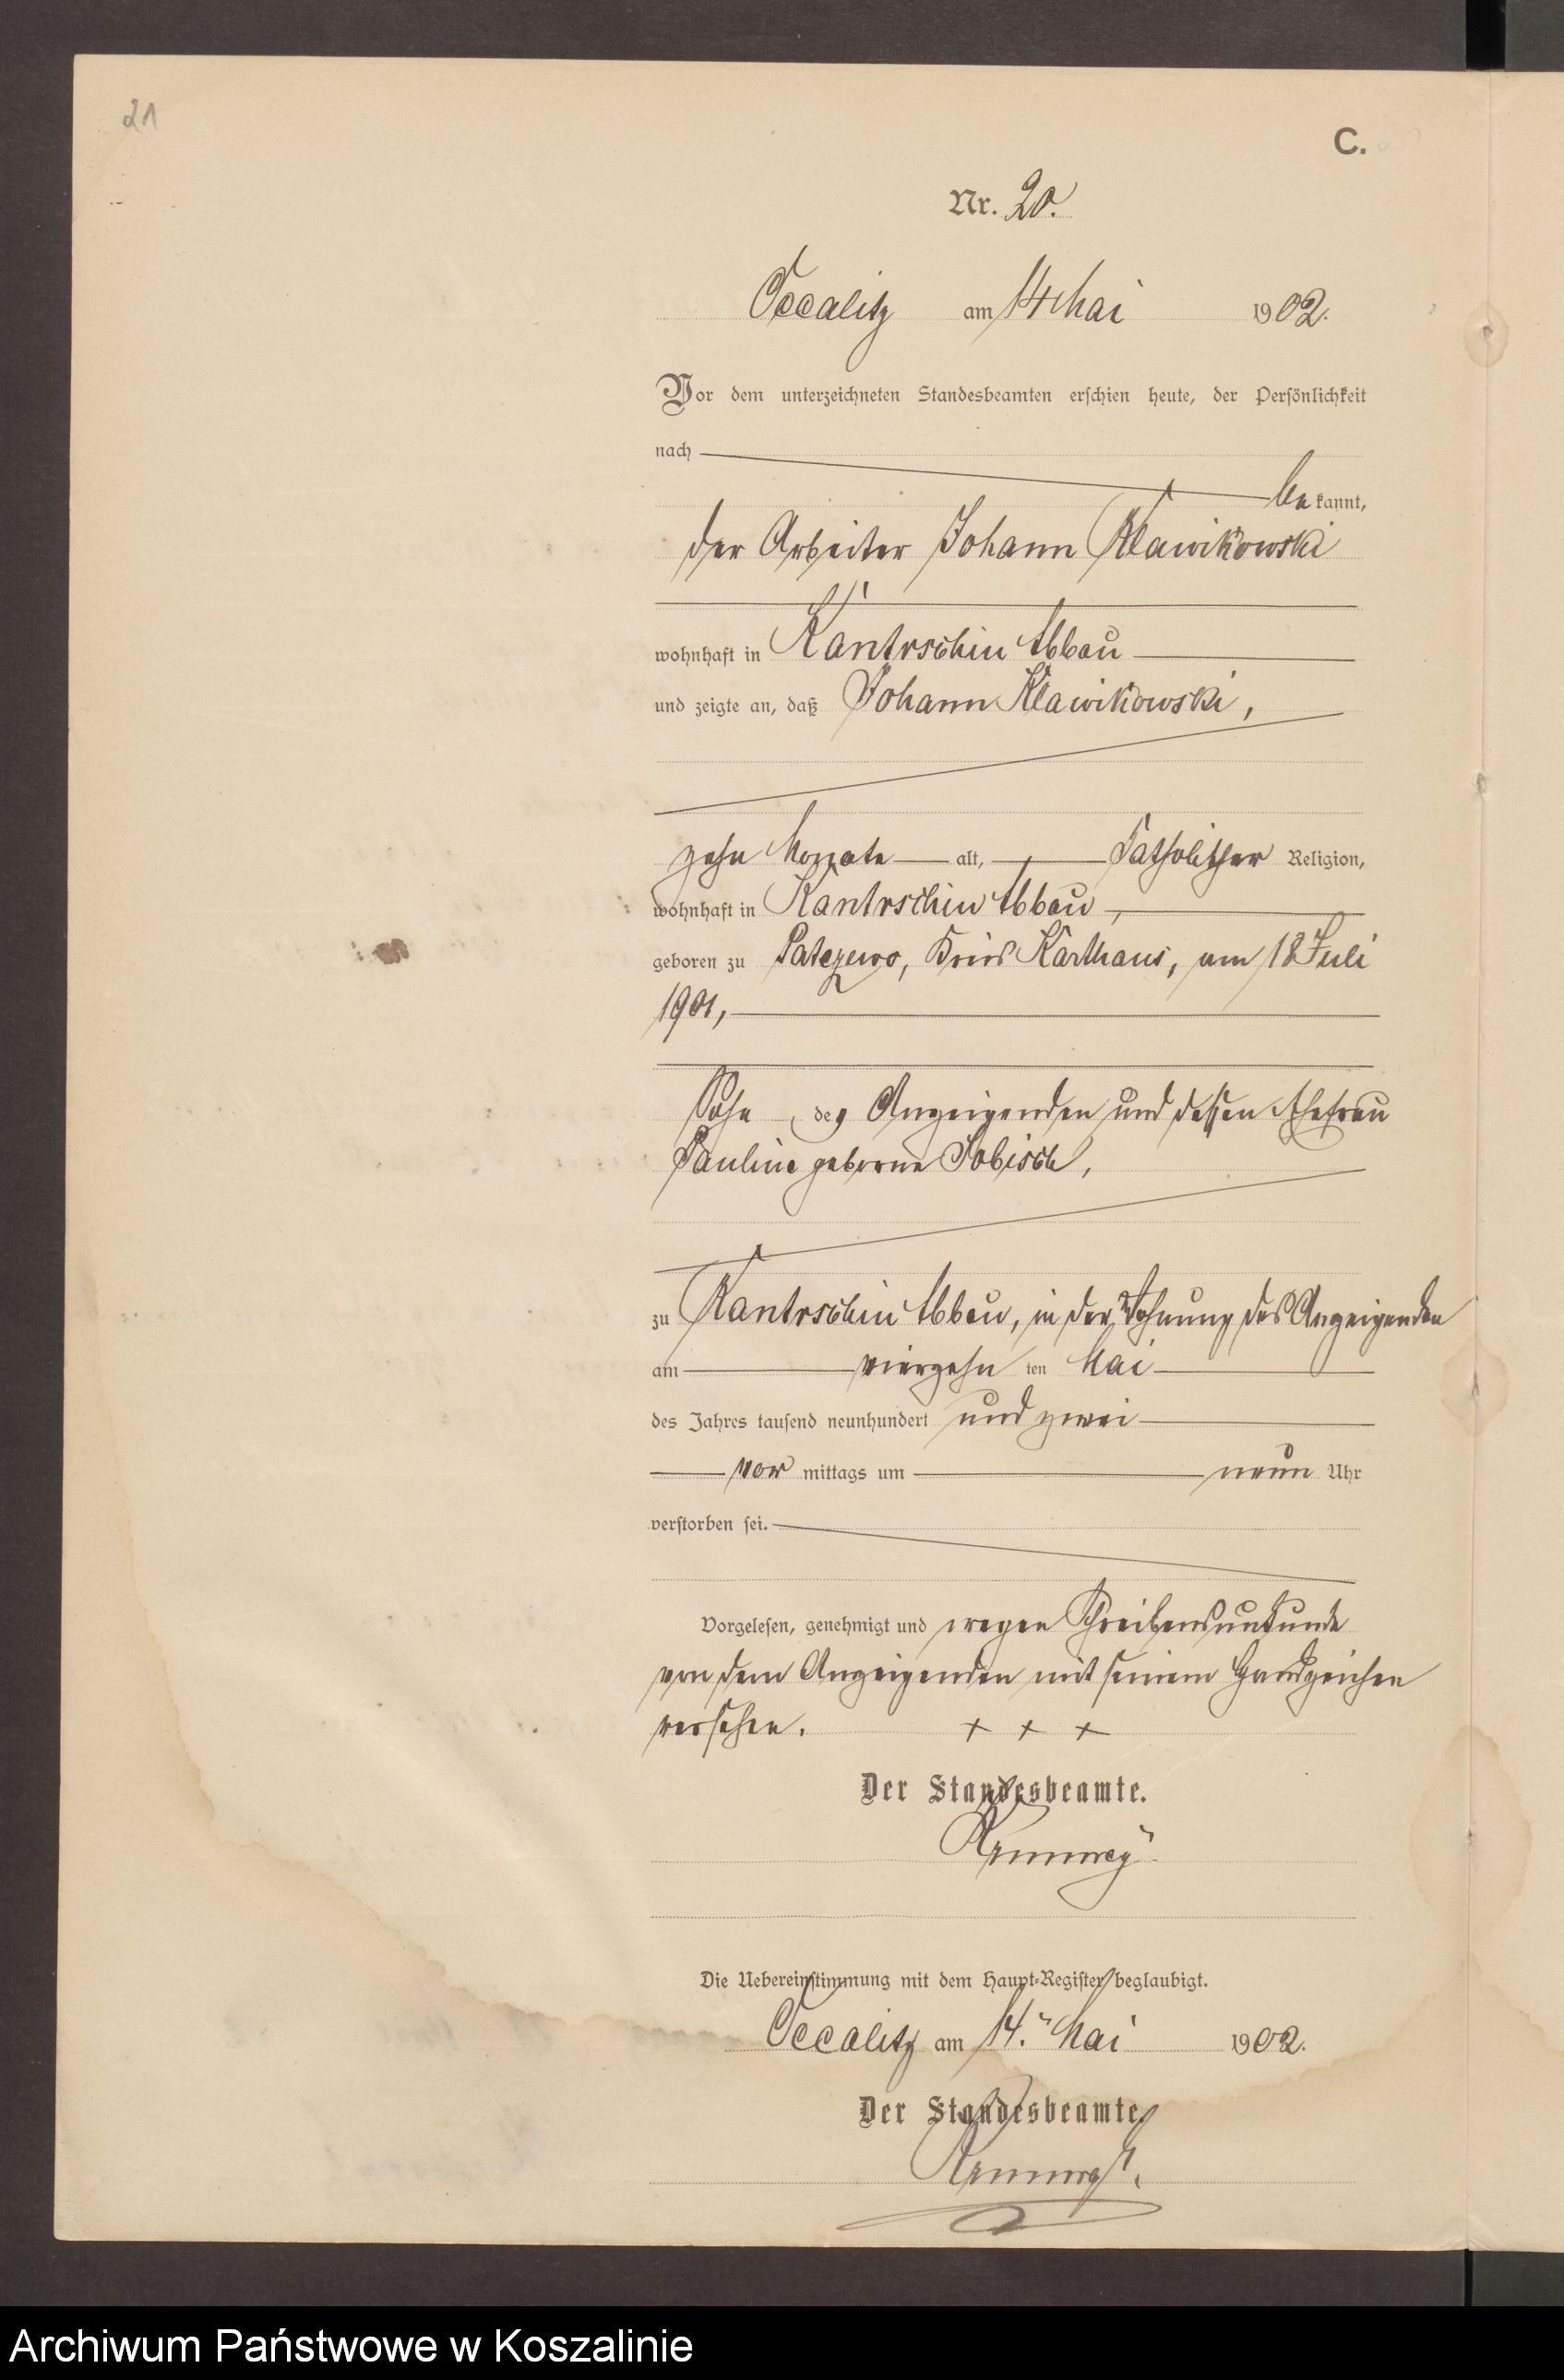 21
C.
Nr. 20.
Occalitz am 14 Mai 1902.
Vor dem unterzeichneten Standesbeamten erschien heute, der Persönlichkeit
nach
be kannt,
der Arbeiter Johann Klawikowski
wohnhaft in Kantrschin Abbau
und zeigte an, daß Johann Klawikowski,
zehn Monate alt, katholischer Religion,
wohnhaft in Kantrschin Abbau,
geboren zu Patczewo, Kreis Karthaus, am 18 Juli
1901,
Sohn des Anzeigenden und dessen Ehefrau
Pauline geborne Sobisch,
zu Kantrschin Abbau, in der Wohnung des Anzeigenden
am vierzehn ten Mai
des Jahres tausend neunhundert und zwei
vor mittags um neun Uhr
verstorben sei.
Vorgelesen, genehmigt und wegen Schreibensunkunde
von dem Anzeigenden mit seinem Handzeichen
versehen. + + +
Der Standesbeamte.
Die Uebereinstimmung mit dem Haupt-Register beglaubigt.
Occalitz am 14. Mai 1902.
Der Standesbeamte.
Archiwum Państwowe w Koszalinie